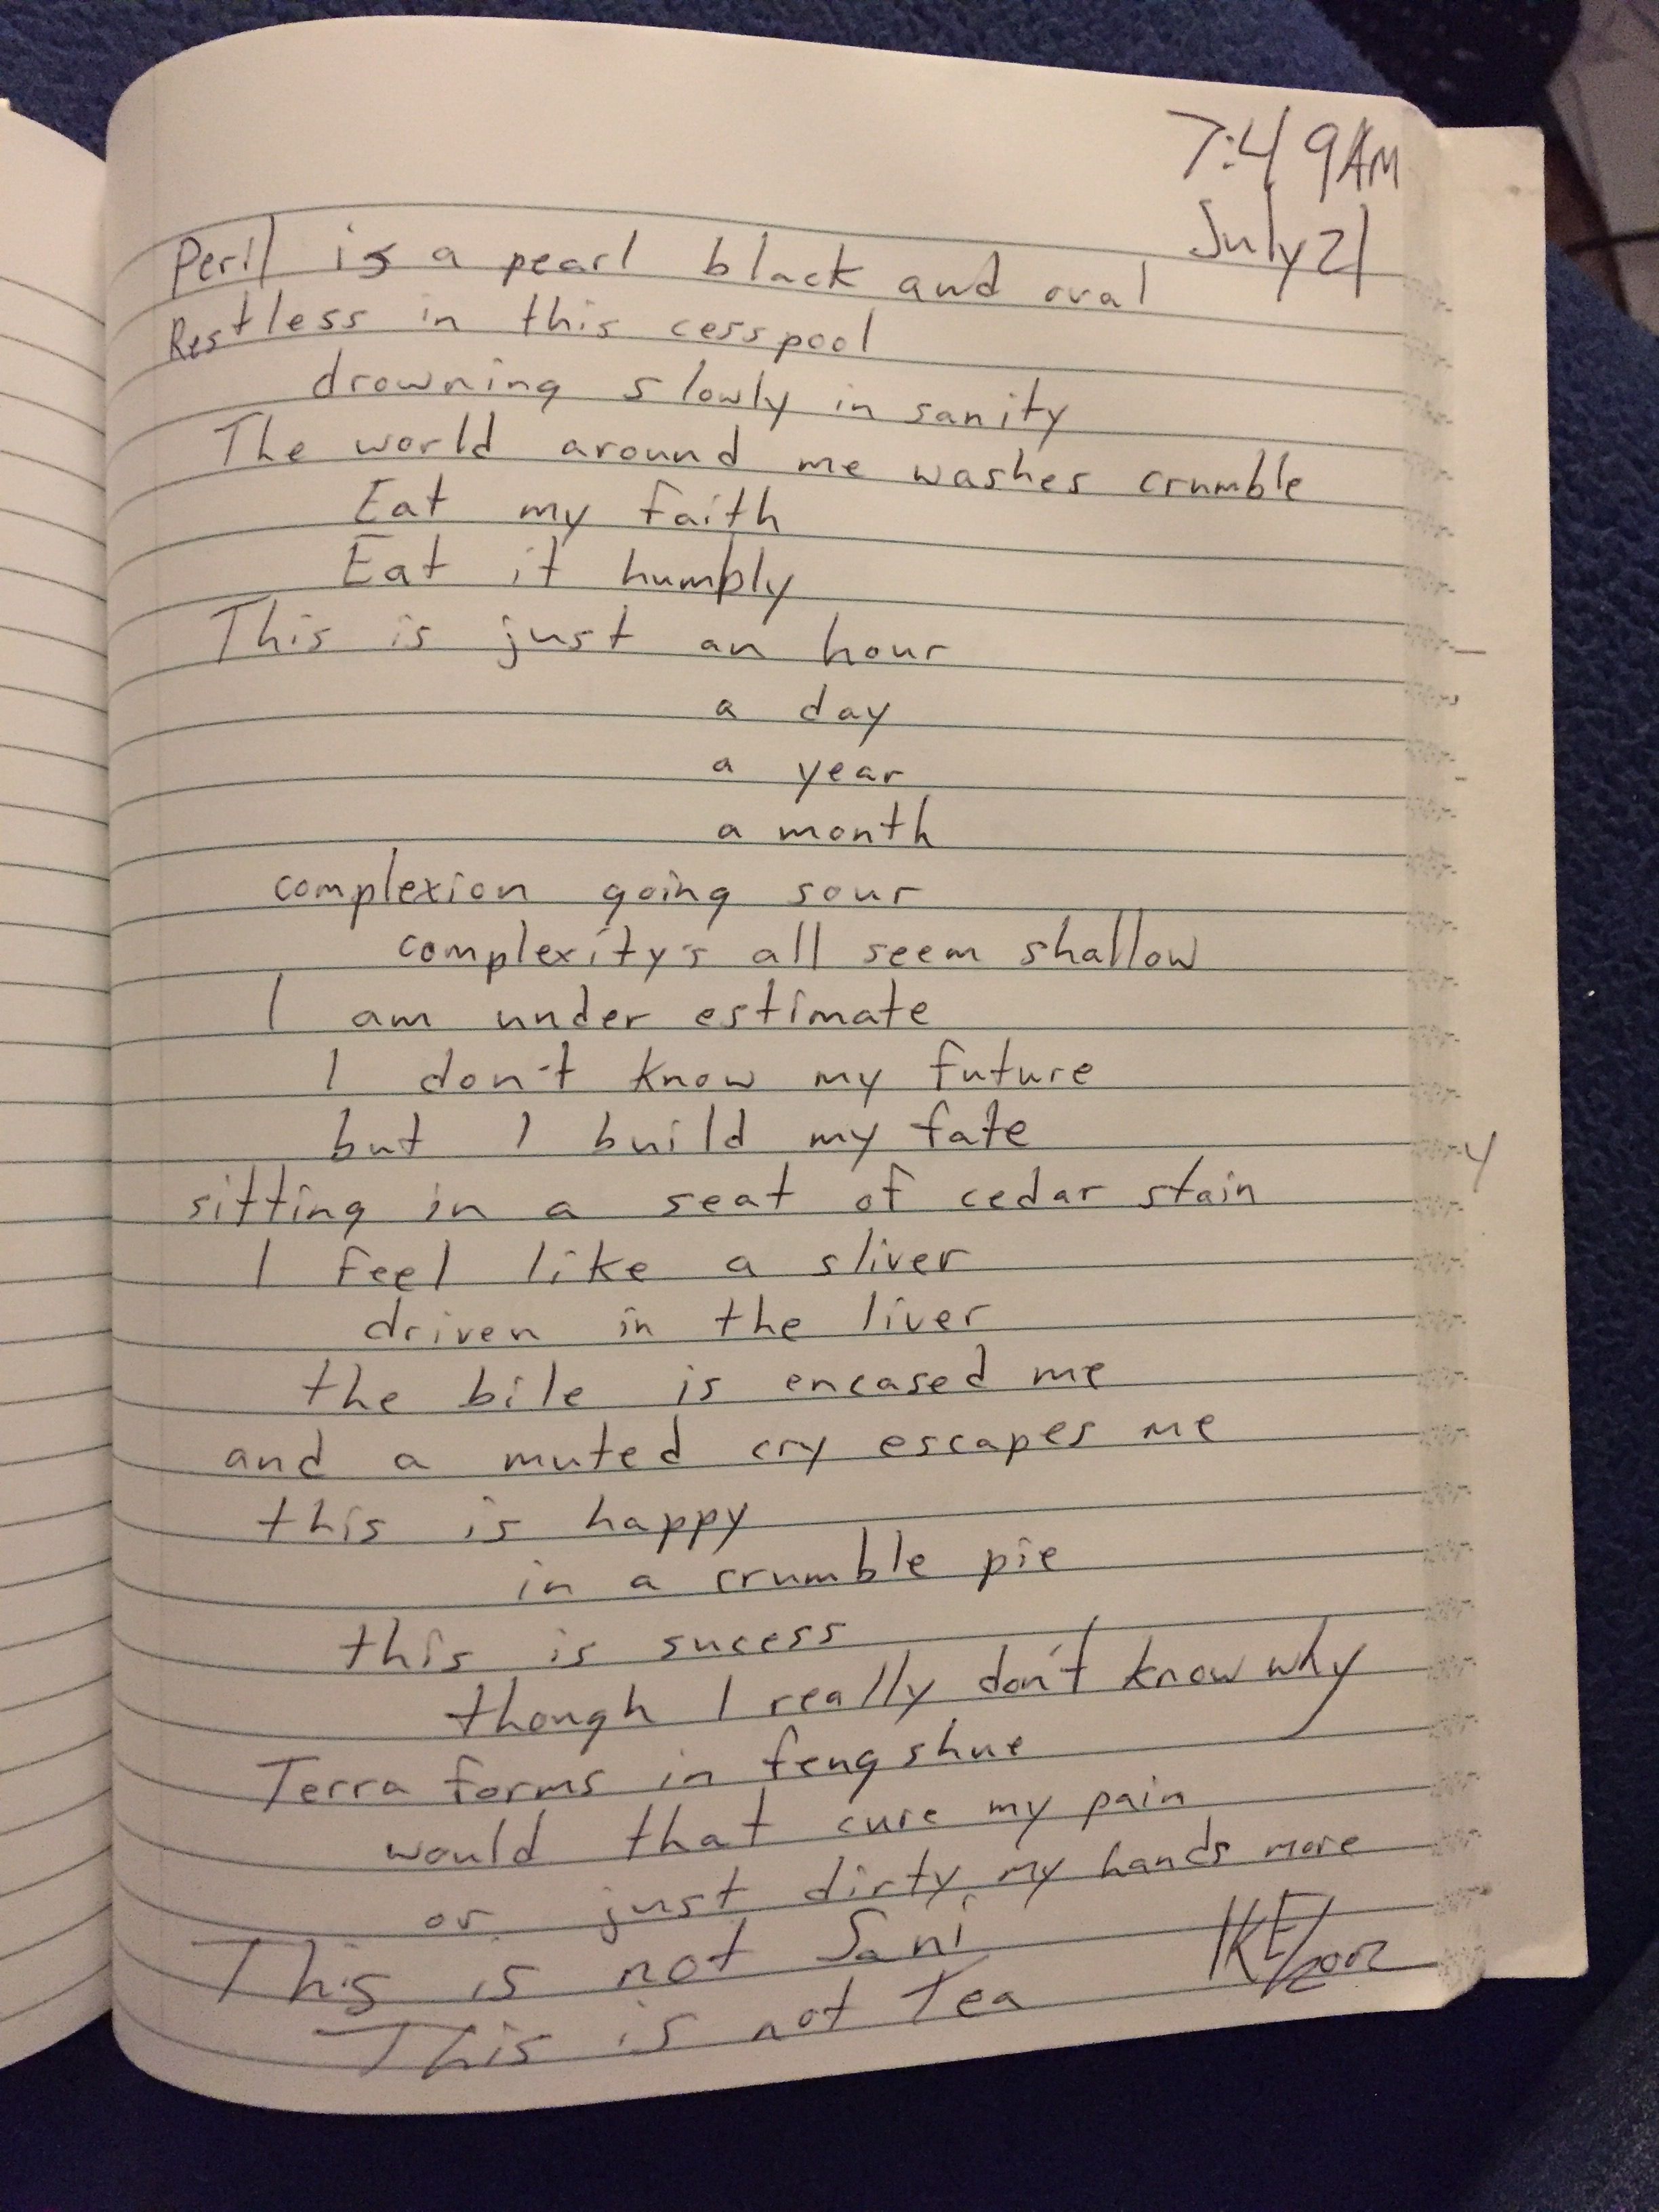 7:49AM
July 21
Peril is a pearl black and oval
Restless in this cesspool
drowning slowly in sanity
The world around me washes crumble
Eat my faith
Eat it humbly
This is just an hour
a day
a year
a month
complexion going sour
complexity's all seem shallow
I am under estimate
I don't know my future
but I build my fate
sitting in a seat of cedar stain
I feel like a sliver
driven in the liver
the bile is encased me
and a muted cry escapes me
this is happy
in a crumble pie
this is sucess
though I really don't know why
Terra forms in feng shue
would that cure my pain
or just dirty my hands more
This is not Sani
This is not Tea
IKE/2002
y